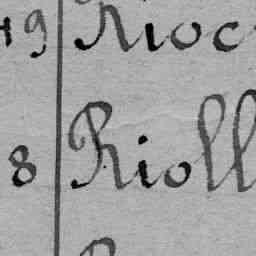 49 Rioc
8 Rioll